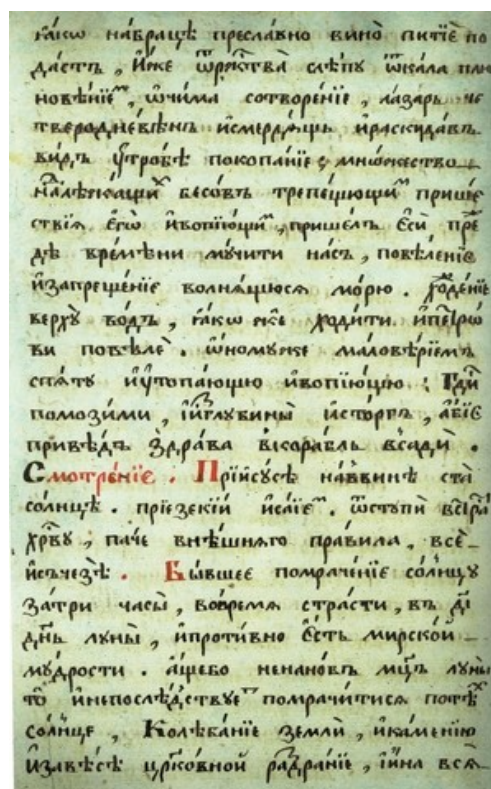 ꙗ҆́кѡ на́брацѣ̀ пресла́вно вино̀ питїѐ по
да́стъ , и҆́же ѿржⷭ҇тва̀ слѣ́пꙋ ѿка́ла плю
нове́нїеⷨ , ѻ҆чи́ма сотворе́нїе , ла́зарь че
твероднѐвенъ и҆смердѧ́щь и҆раскида́въ
ви́дъ ᲂу҆тро́бѣ покопа́нїе ; мно́жество
належа́щиⷯ бесо́въ трепе́щющиⷯ прише́
ствїѧ є҆гѡ̀ и҆вопїю́щиⷯ , пришѐлъ є҆сѝ пре́
дѣ вре́мѣни мꙋ́чити на́съ , повѣлѣ́нїе
и҆запреще́нїе волнѧ́щюсѧ мо́рю . хожде́нїе
верхꙋ̀ во́дъ , ꙗ҆́кѡ же ходи́ти и҆петро́
ви повѣлѐ . ѻ҆номꙋ́же малове́рїемъ
спѧ́тꙋ и҆ᲂу҆топа́ющю и҆вопїю́щю ; гдⷭ҇и
помози́ми , и҆и҆зглꙋбины̀ и҆сто́ргъ , а҆́бїе
приве́дъ здра́ва в̾кора́бль всадѝ .
Смотре́нїе . Прїи҆сꙋ́сѣ на́ввинѣ ста̀
со́лнцѣ . прїезекі́и и҆са́їеⷨ . ѿстꙋпѝ
паче внѣ́шнѧго пра́вила , всѐ
и҆счезѐ . Бы́вшее помраче́нїе со́лнцꙋ
затрѝ часы̀ , во́времѧ стра́сти , въ д҃і
дн҃ь лꙋны̀ , и҆проти́вно є҆́сть мирско́й
мꙋ́дрости . а҆́щебо ненано́въ мцⷭ҇ъ лꙋны̀
то̀ и҆непослѣ́дствꙋеⷮ помрачи́тисѧ
со́лнце , Колѣба́нїе землѝ , и҆ка́менїю
и҆заве́сѣ цр҃ко́вной раздра́нїе , и҆и҆на всѧ̀